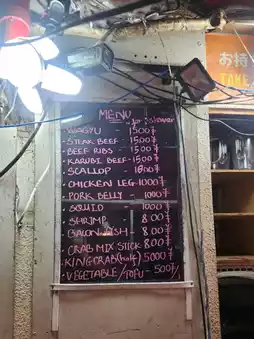 MENU
WAGYU - 1500¥
STEAK BEEF - 1500¥
BEEF RIBS - 1500¥
KARUBI BEEF - 1500¥
SCALLOP - 1000¥
CHICKEN LEG 1000¥
PORK BELLY - 1000¥
SQUID 1000¥
SHRIMP - 800¥
BACON FISH - 800¥
CRAB MIX STICK 800¥
KING CRAB (half) 5000¥
VEGETABLE/TOFU - 500¥
お持
TAKE